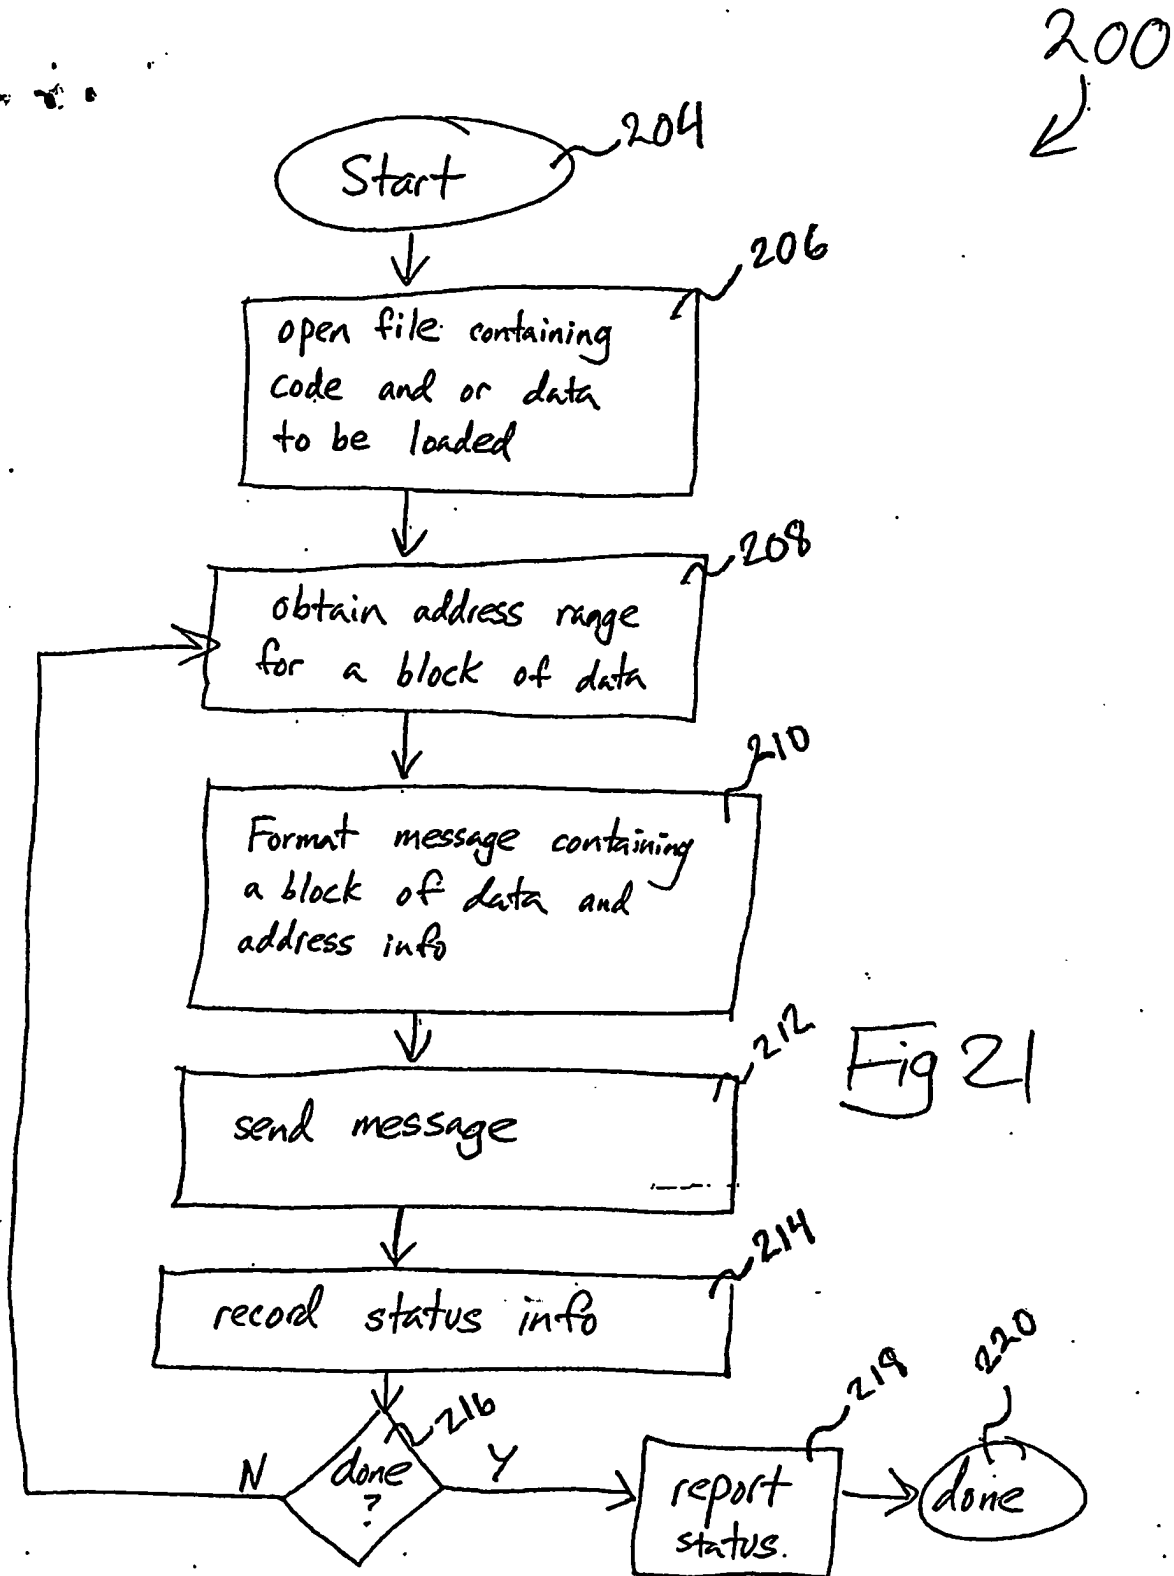 200
204
Start
206
open file containing
code and or data
to be loaded
208
obtain address range
for a block of data
210
Format message containing
a block of data and
address info
212
send message
Fig 21
214
record status info
216
N
done
?
Y
218
report
status.
220
done